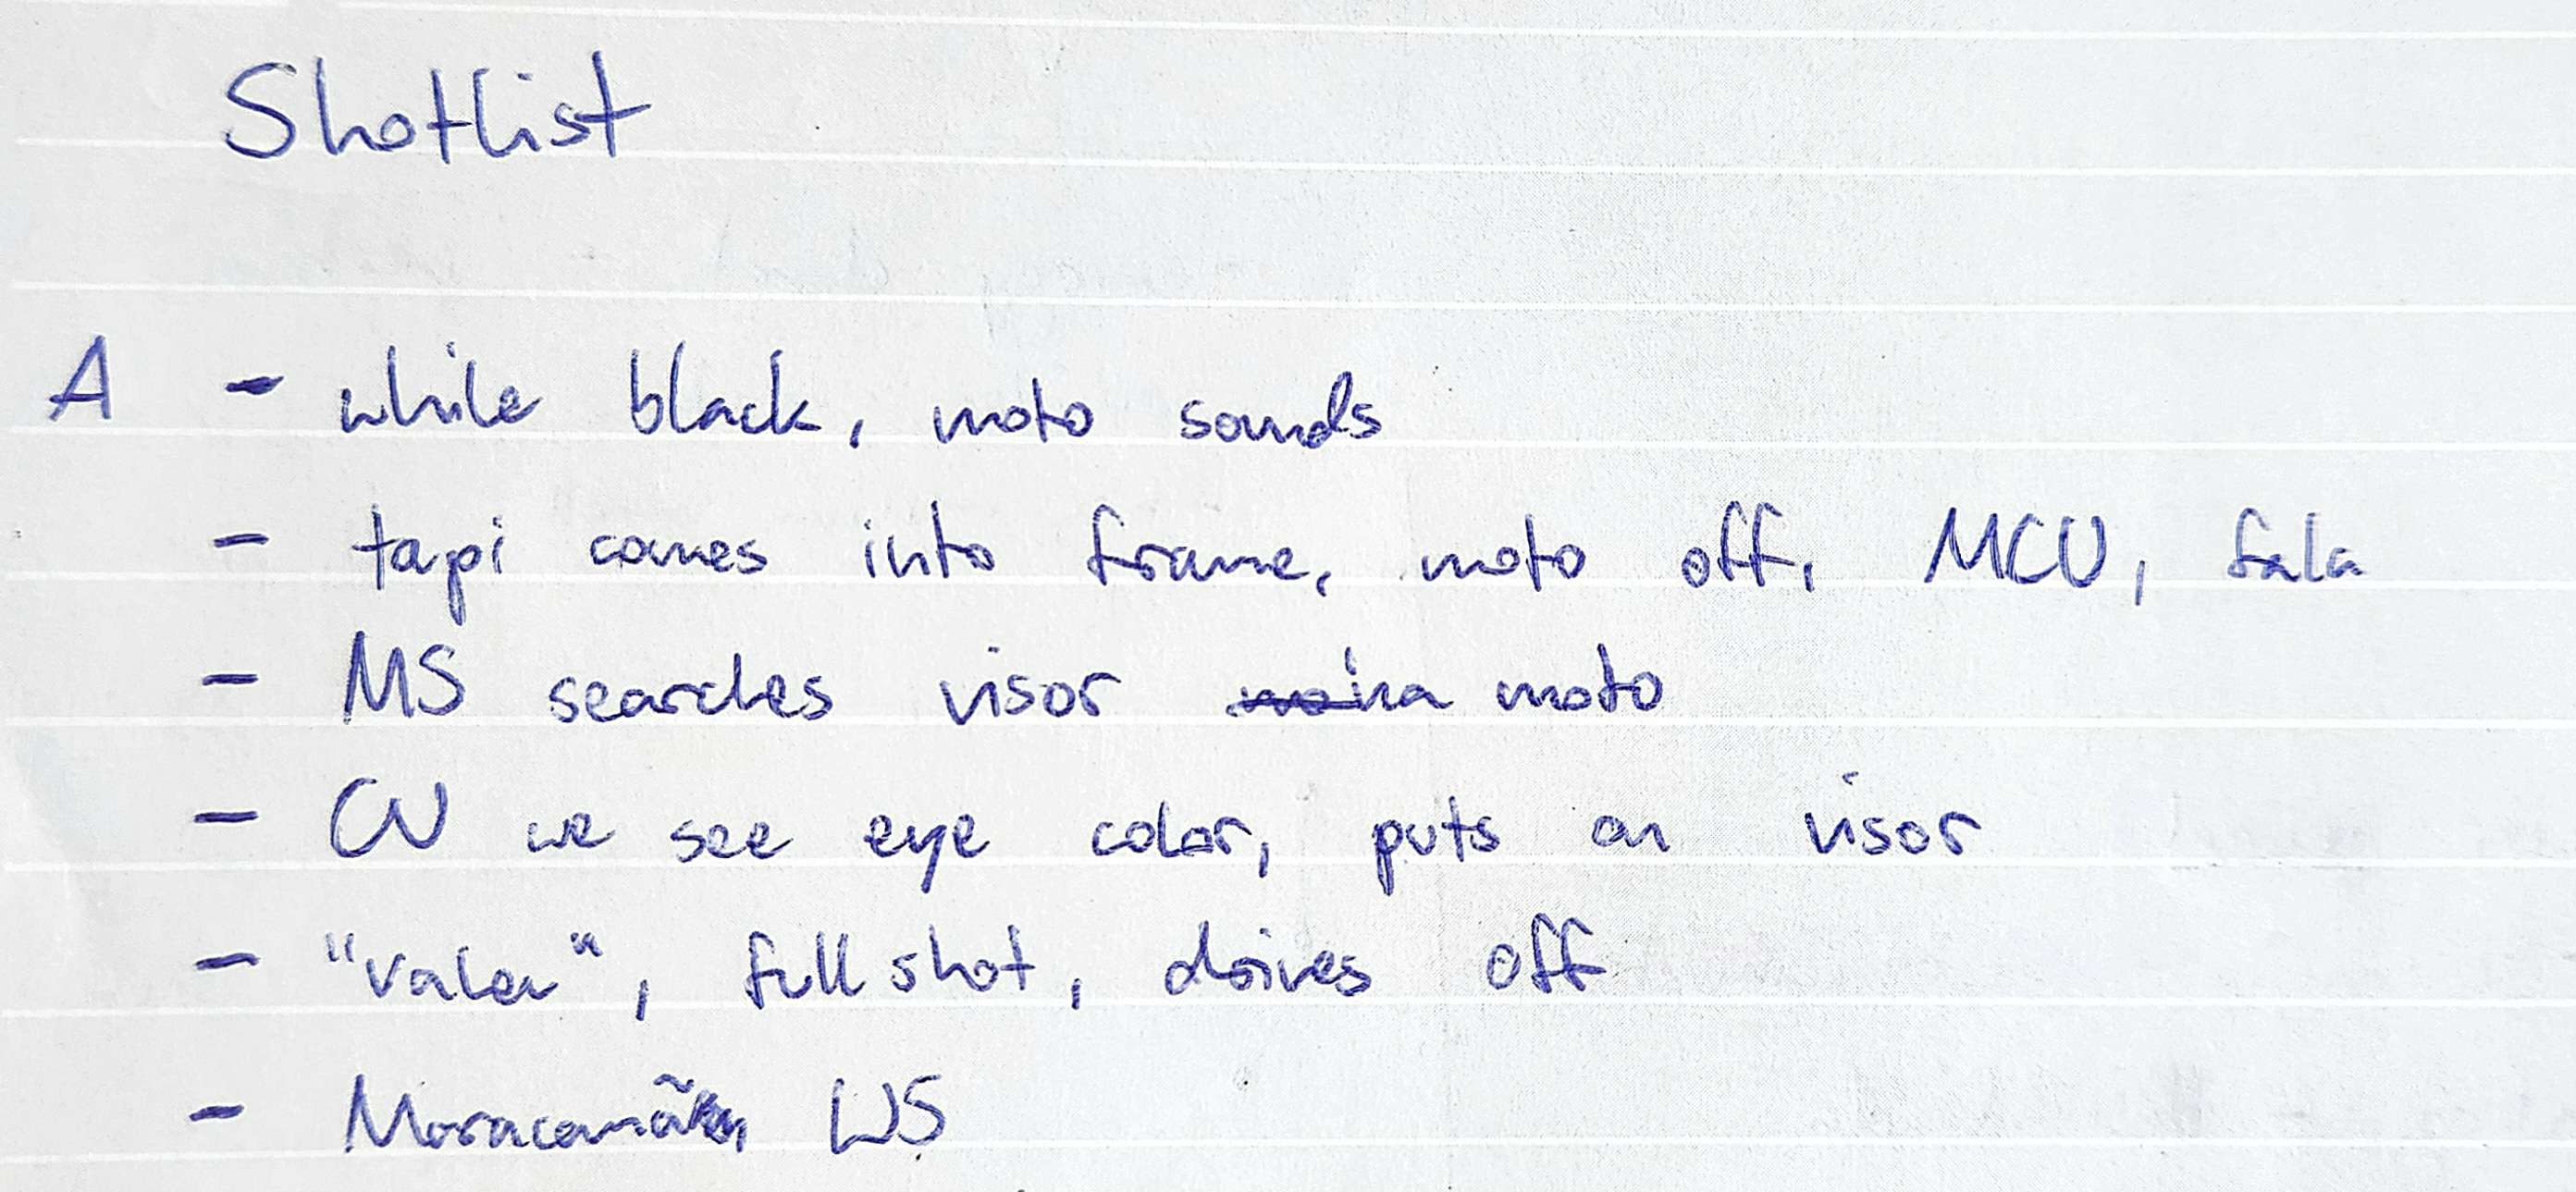 Shotlist
A - while black, moto sounds
- tapi comes into frame, moto off, MCU, fala
- MS searches visor na moto
- CU we see eye color, puts on visor
- "Valeu", full shot, drives off
- Maracanã, WS